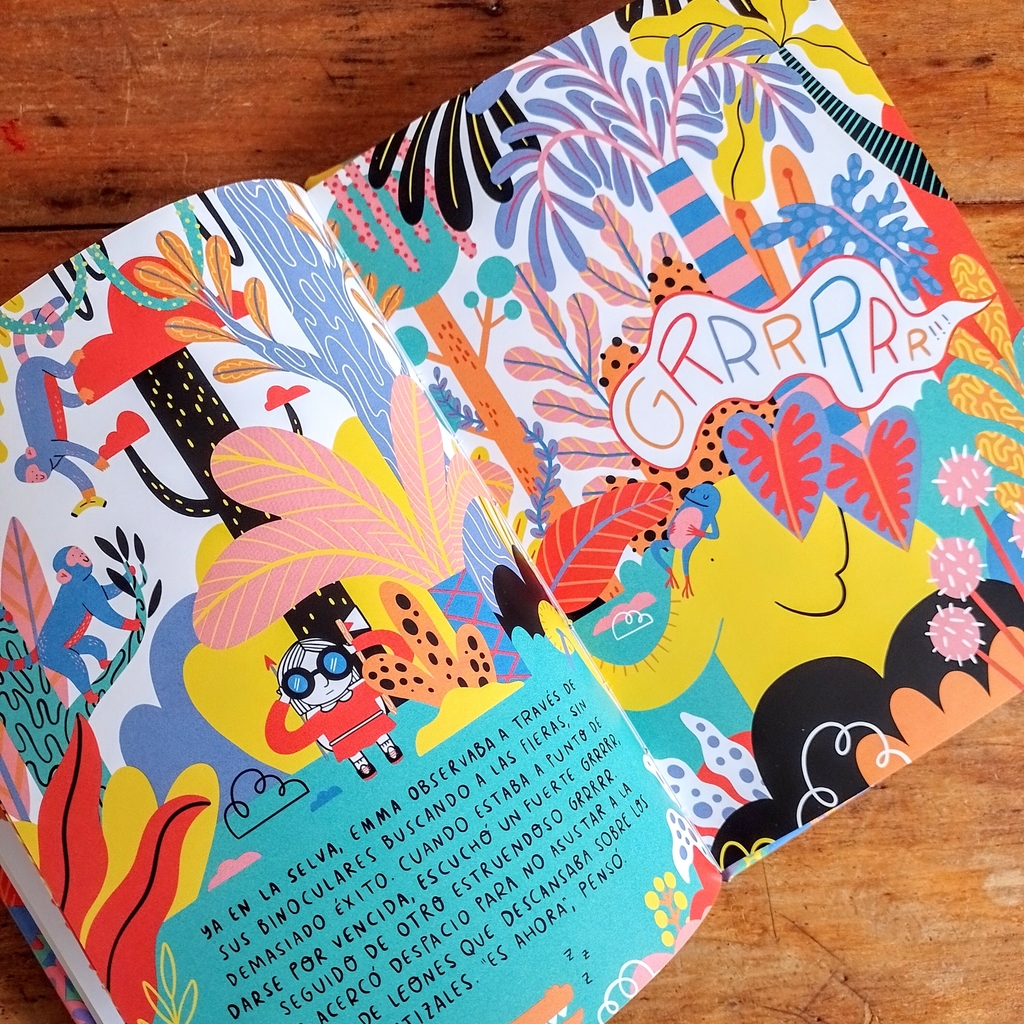 GRRRRRR!!!
YA EN LA SELVA, EMMA OBSERVABA A TRAVÉS DE
SUS BINOCULARES BUSCANDO A LAS FIERAS, SIN
DEMASIADO ÉXITO. CUANDO ESTABA A PUNTO DE
DARSE POR VENCIDA, ESCUCHÓ UN FUERTE GRRRRR,
SEGUIDO DE OTRO ESTRUENDOSO GRRRRR.
ACERCÓ DESPACIO PARA NO ASUSTAR A LA
DE LEONES QUE DESCANSABA SOBRE LOS
"ES AHORA", PENSÓ.
z z
z